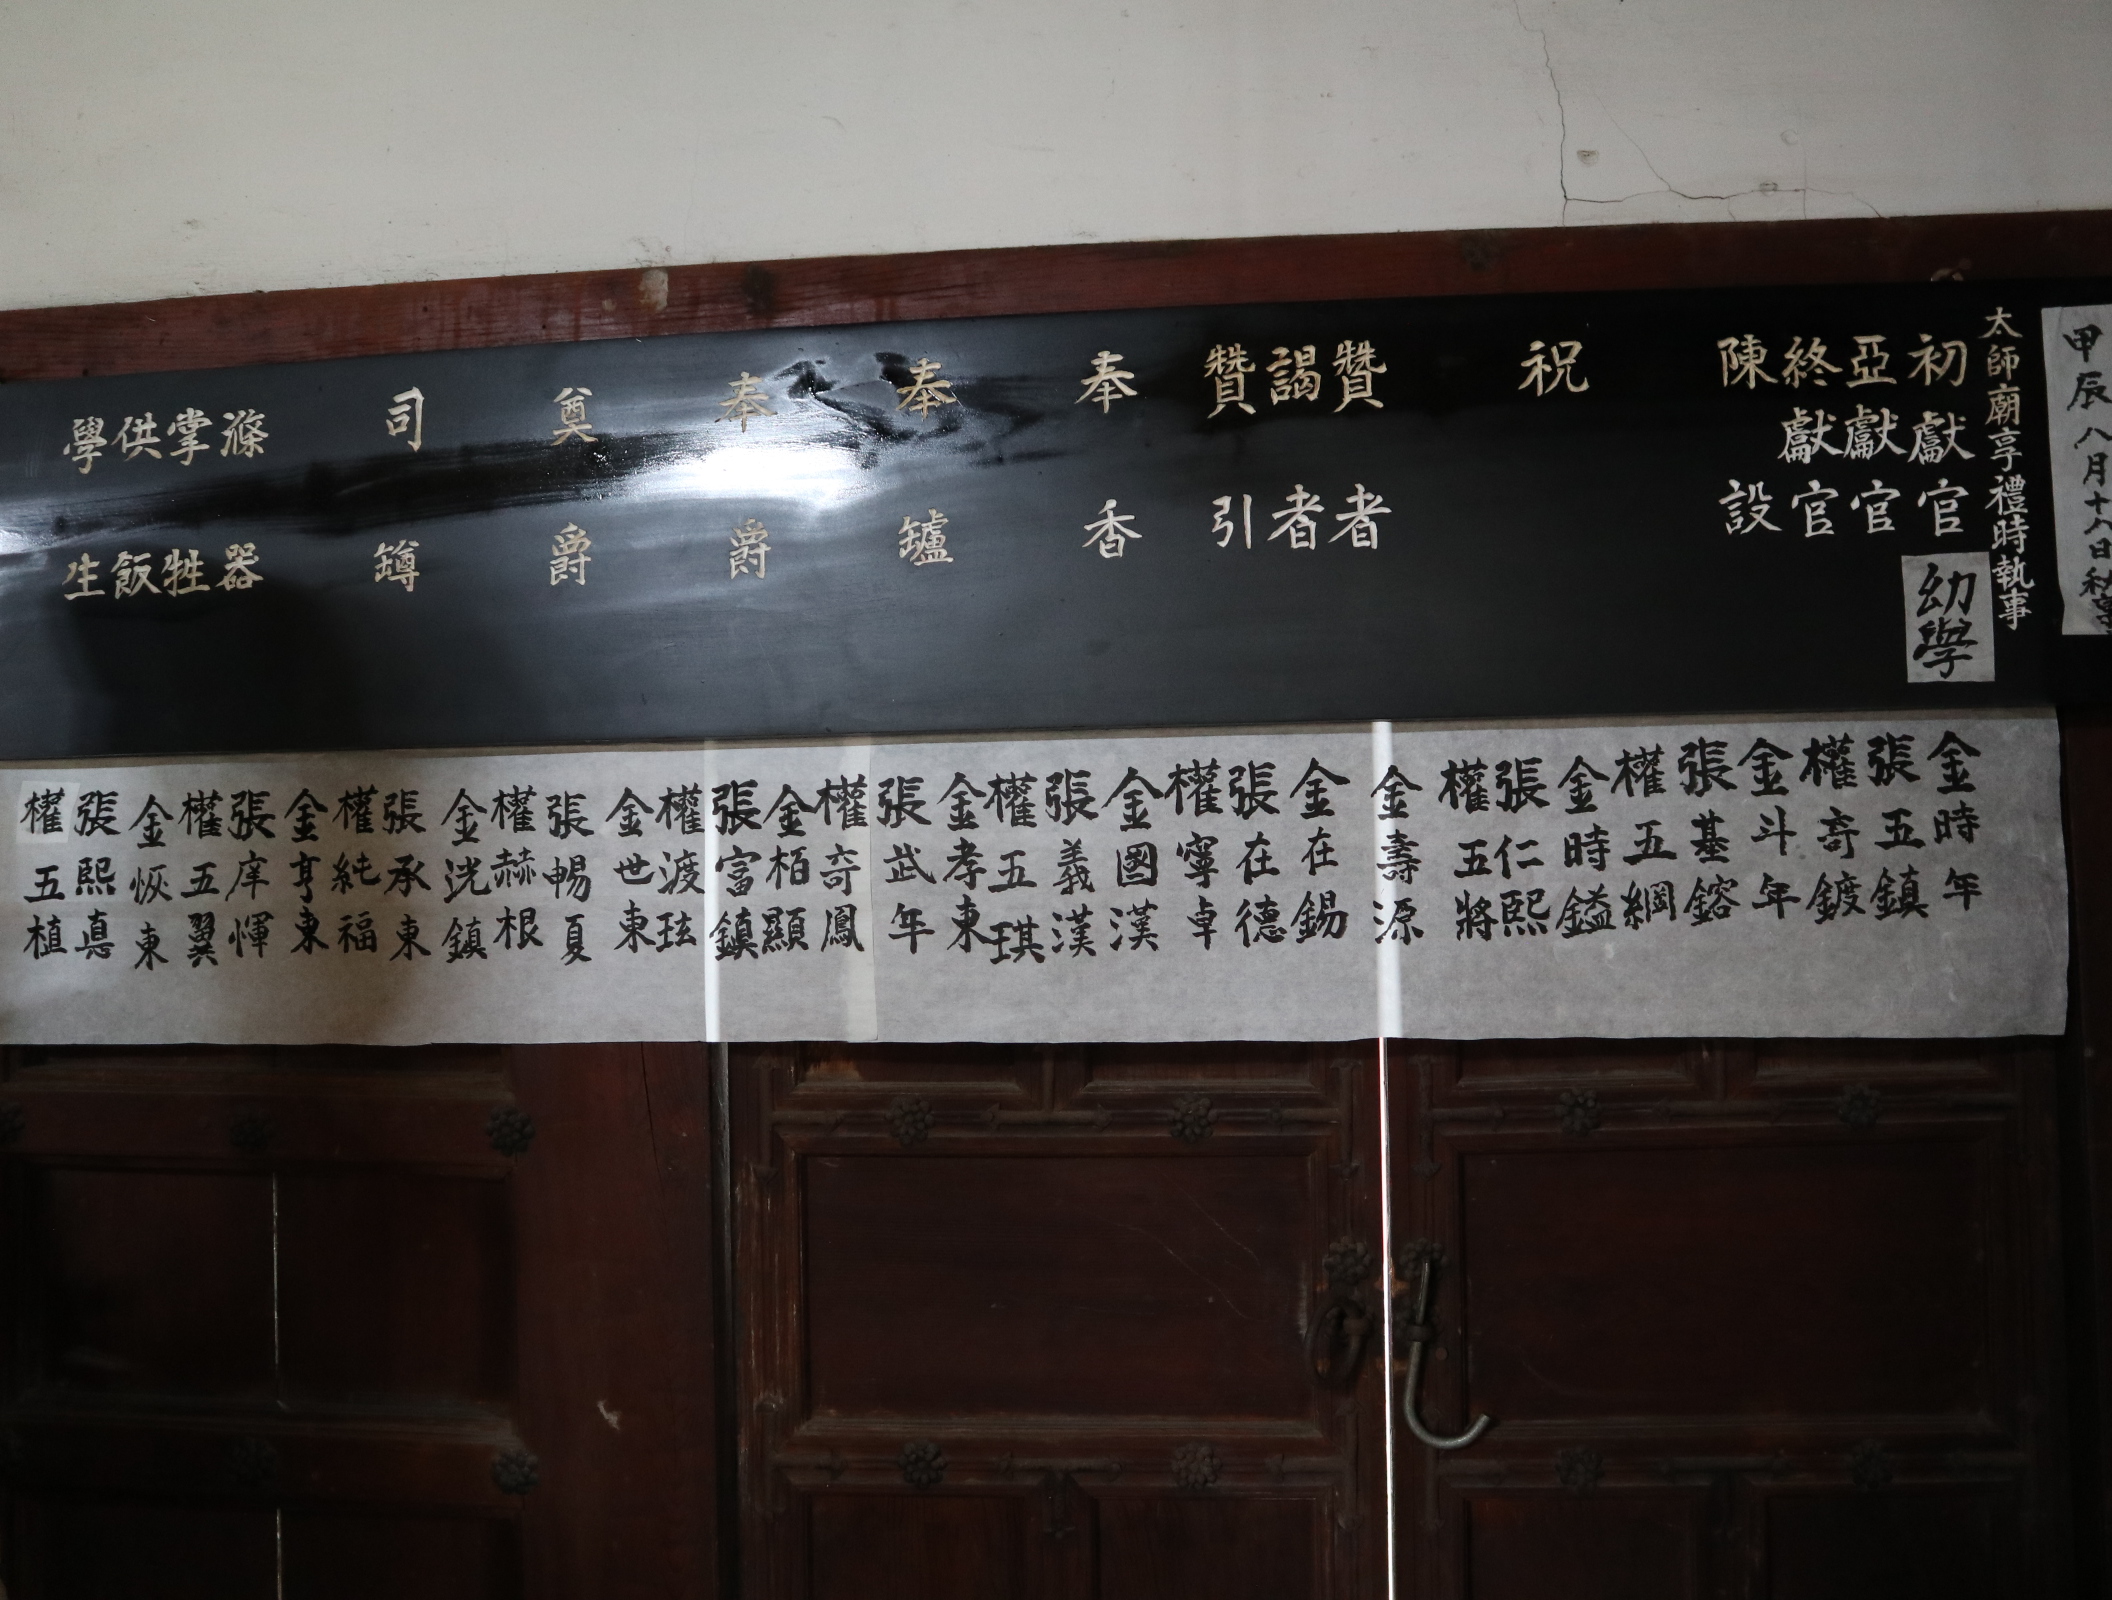 甲辰八月十八日秋享
太師廟享禮時執事
初獻官
幼學
亞獻官
終獻官
陳設
祝
贊者
謁者
贊引
奉香
奉鑪
奉爵
奠爵
司罇
滌器
掌牲
供飯
學生
金時年
張五鎮
權奇鍍
金斗年
張基鎔
權五綱
金時鎰
張仁熙
權五將
金壽源
金在錫
張在德
權寧卓
金國漢
張義漢
權五琪
金孝東
張武年
權奇鳳
金栢顯
張富鎮
權渡玹
金世東
張暢夏
權赫根
金洸鎮
張承東
權純福
金亨東
張庠惲
權五翼
金恢東
張熙悳
權五植